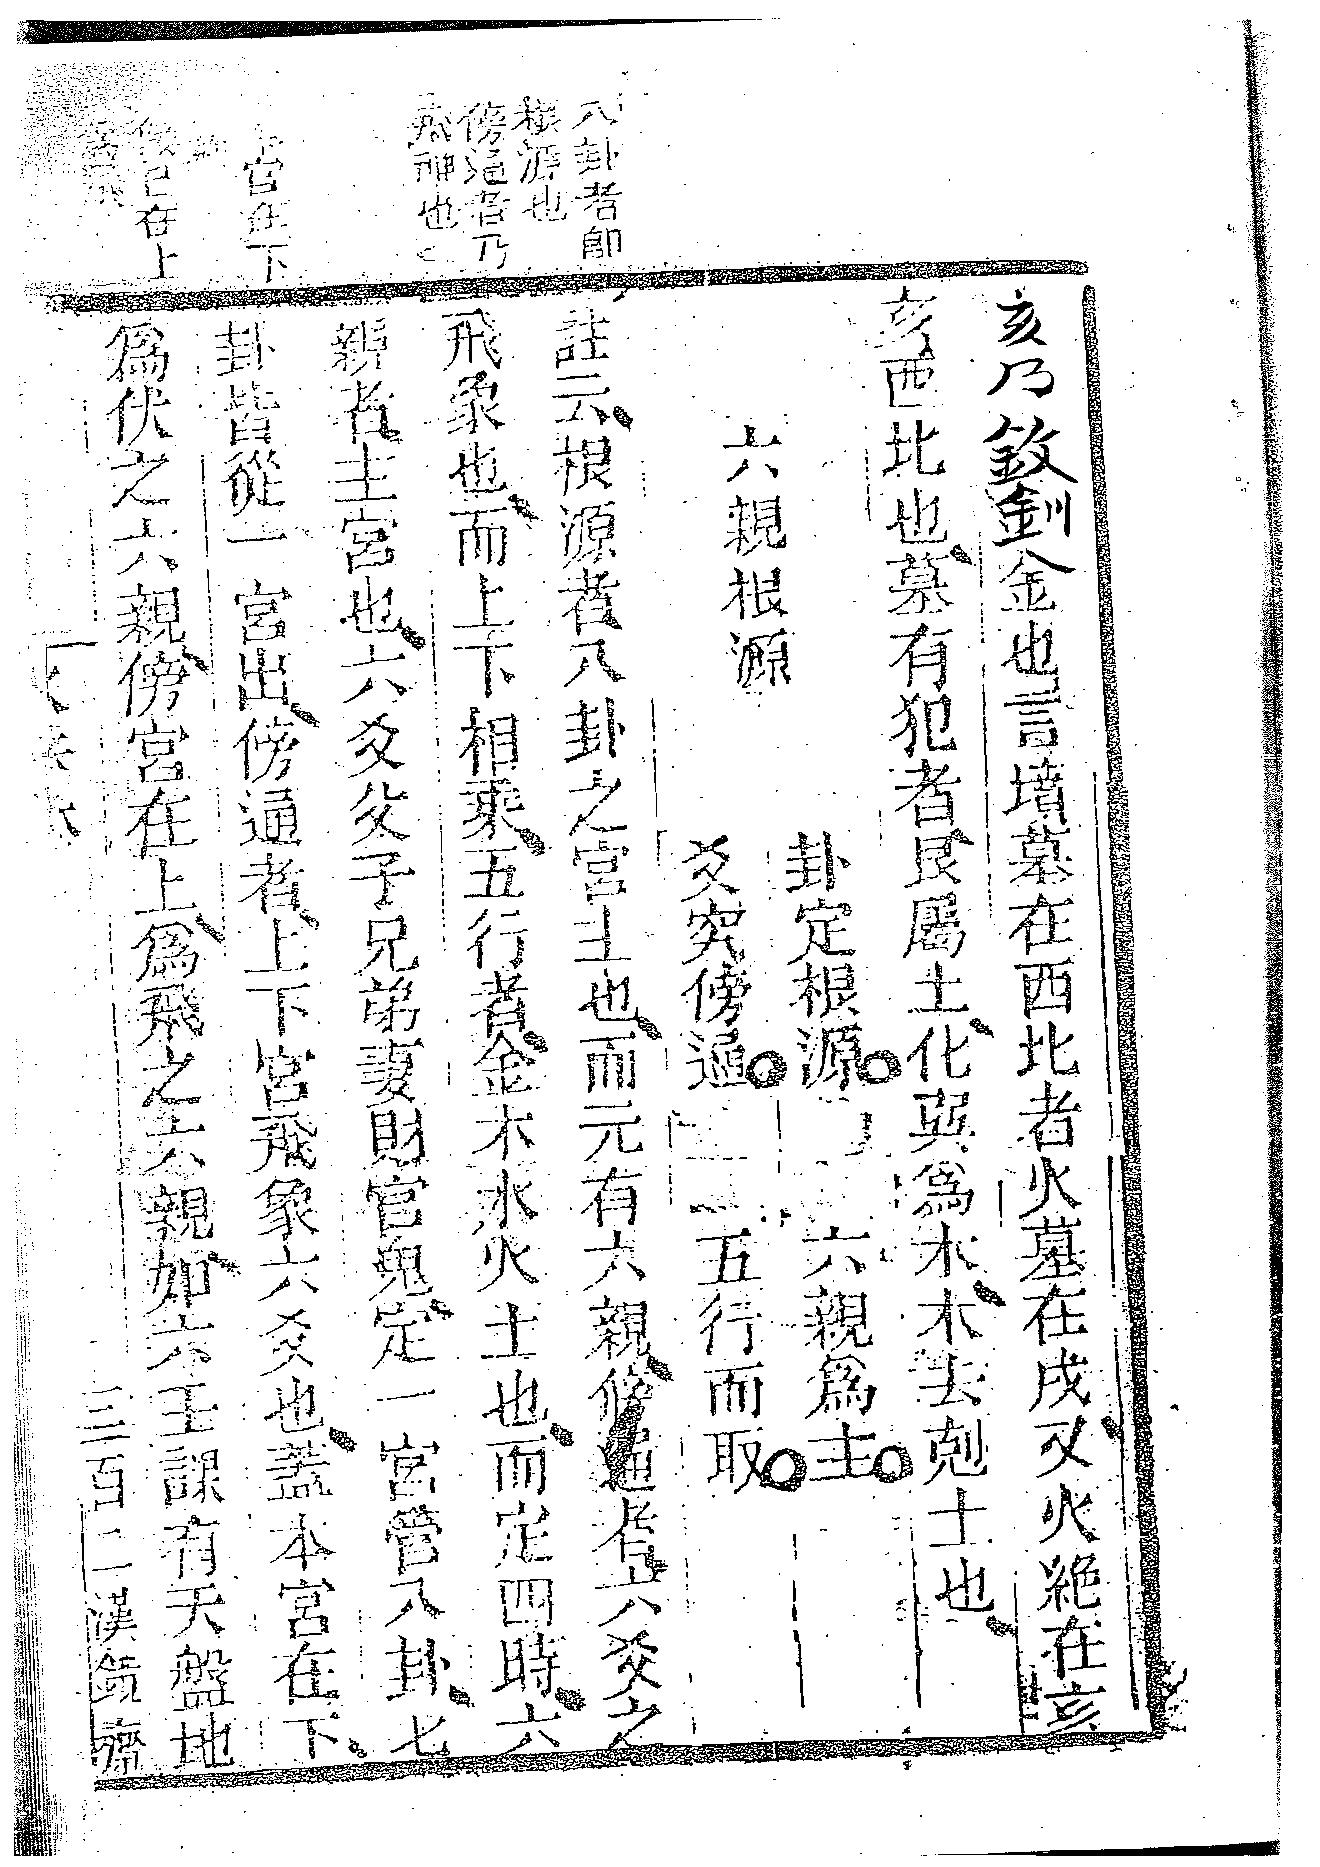 八卦者即
根源也
傍通者乃
飛神也
宮在下
傍宮在上
亥乃釵釧金也言墳墓在西北者火墓在戌又火絶在亥
亥西北也墓有犯者艮屬土化巽爲木木去剋土也
六親根源
卦定根源 六親爲主
爻究傍通 五行而取
註云根源者八卦之宮主也而元有六親傍通者六爻之
飛象也而上下相乘五行者金木水火土也而定四時六
親者主宮也六爻父子兄弟妻財官鬼定一宮管八卦七
卦皆從一宮出傍通者上下宮飛象六爻也蓋本宮在下
爲伏之六親傍宮在上爲飛之六親如六壬課有天盤地
三百二漢鏡齋